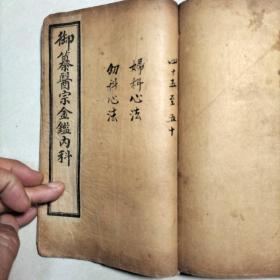 四十五至五十
婦科心法
幼科心法
御纂醫宗金鑑內科